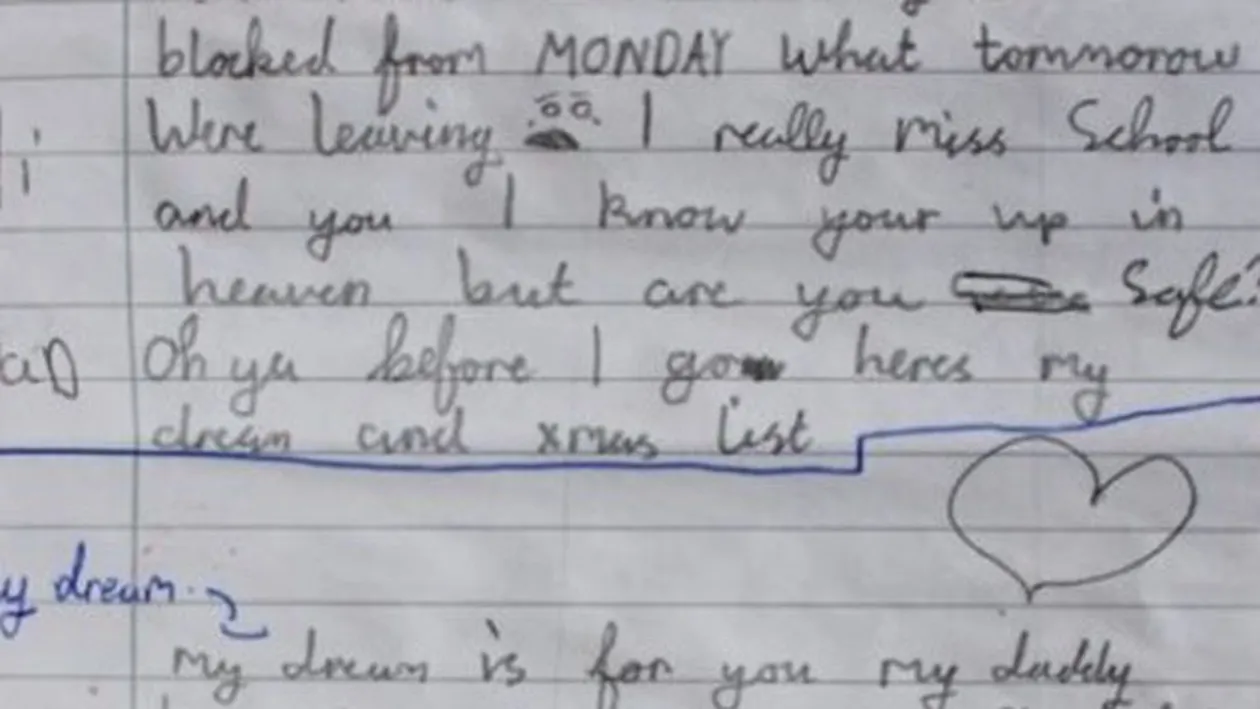 blocked from MONDAY What tommorow
Were leaving I really miss School
and you I know your up in
heaven but are you Safe?
Oh ya before I go heres my
dream and xmas list
y dream
my dream is for you my daddy